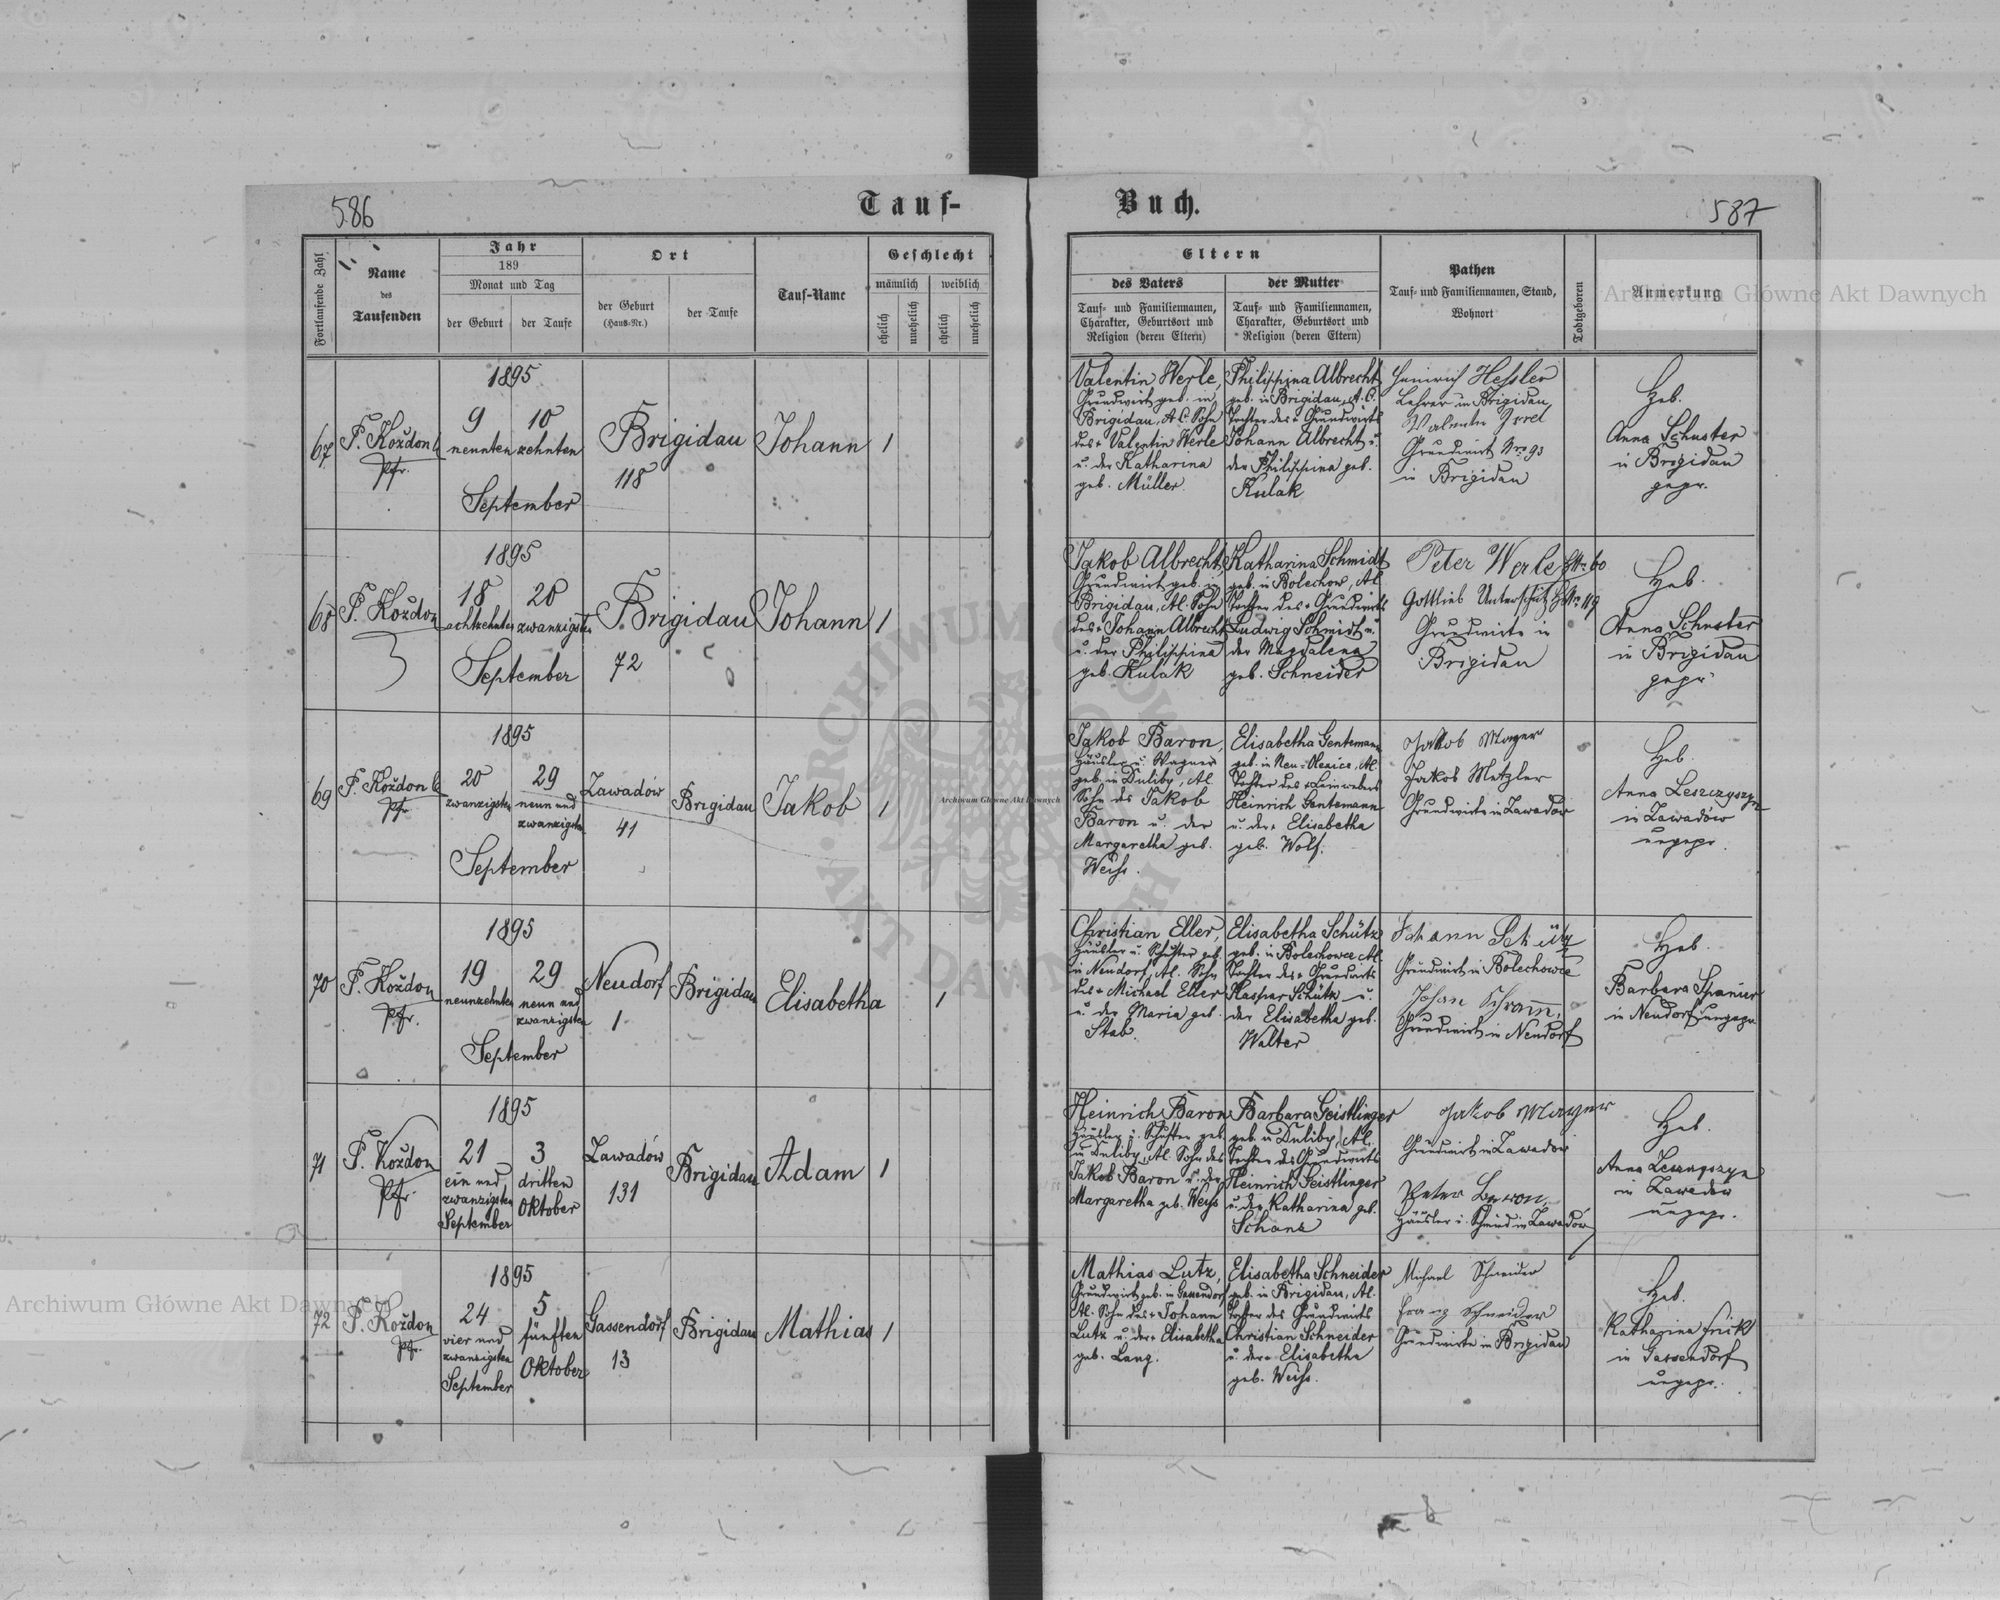 586
Tauf-
Buch.
587
Fortlaufende Zahl
Name
des
Taufenden
Jahr
189
Monat und Tag
der Geburt
der Taufe
Ort
der Geburt
(Haus-Nr.)
der Taufe
Tauf-Name
Geschlecht
männlich
weiblich
ehelich
unehelich
ehelich
unehelich
Eltern
des Vaters
Tauf- und Familiennamen,
Charakter, Geburtsort und
Religion (deren Eltern)
der Mutter
Tauf- und Familiennamen,
Charakter, Geburtsort und
Religion (deren Eltern)
Pathen
Tauf- und Familiennamen, Stand,
Wohnort
Todtgeboren
Anmerkung
67
F. Koždon
Pfr.
1895
9
neunten
10
zehnten
September
Brigidau
118
Johann
1
Valentin Werle,
Grundwirt geb. in
Brigidau, A.C. Sohn
des + Valentin Werle
u. der Katharina
geb. Müller.
Philippina Albrecht
geb. in Brigidau, A.C.
Tochter des + Grundwirts
Johann Albrecht u.
der Philippina geb.
Kulak
Heinrich Hessler
Lehrer in Brigidau
Grundwirt Nro 93
in Brigidau
Heb.
Anna Schuster
in Brigidau
gepr.
68
F. Koždon
1895
18
achtzehnten
20
zwanzigsten
September
Brigidau
72
Johann
1
Jakob Albrecht,
Grundwirt geb. in
Brigidau, Al. Sohn
des + Johann Albrecht
u. der Philippina
geb. Kulak
Katharina Schmidt
geb. in Bolechow, Al.
Tochter des + Grundwirts
Ludwig Schmidt u.
der Magdalena
geb. Schneider
Peter Werle HNr. 60
Gottlieb Unterschütz HNr. 119
Grundwirte in
Brigidau
Heb.
Anna Schuster
in Brigidau
gepr.
69
F. Koždon
Pfr.
1895
20
zwanzigsten
29
neun und
zwanzigsten
September
Zawadów
41
Brigidau
Jakob
1
Jakob Baron,
Häusler u. Wagner
geb. in Duliby, Al.
Sohn des Jakob
Baron u. der
Margaretha geb.
Weiss.
Elisabetha Gentemann
geb. in Neu-Olexice, Al.
Tochter des + Leinwebers
Heinrich Gentemann
u. der + Elisabetha
geb. Wolf.
Jakob Mayer
Jakob Metzler
Grundwirte in Zawadów
Heb.
Anna Leszczyszyn
in Zawadów
ungepr.
70
F. Koždon
Pfr.
1895
19
neunzehnten
29
neun und
zwanzigsten
September
Neudorf
1
Brigidau
Elisabetha
1
Christian Eller,
Häusler u. Schuster geb.
in Neudorf, Al. Sohn
des + Michael Eller
u. der Maria geb.
Stab.
Elisabetha Schütz
geb. in Bolechowce Al.
Tochter des + Grundwirts
Kaspar Schütz u.
der Elisabetha geb.
Walter
Johann Schütz
Grundwirt in Bolechowce
Johan Schram,
Grundwirt in Neudorf
Heb.
Barbara Spanier
in Neudorf ungepr.
71
F. Koždon
Pfr.
1895
21
ein und
zwanzigsten
September
3
dritten
Oktober
Zawadów
131
Brigidau
Adam
1
Heinrich Baron
Häusler u. Schuster geb.
in Duliby, Al. Sohn des
Jakob Baron u. der
Margaretha geb. Weiss
Barbara Geistlinger
geb. in Duliby, Al.
Tochter des Grundwirts
Heinrich Geistlinger
u. der Katharina geb.
Schanz
Jakob Mayer
Grundwirt in Zawadów
Peter Baron,
Häusler u. Schmied in Zawadów
Heb.
Anna Leszczyszyn
in Zawadów
ungepr.
72
F. Koždon
Pfr.
1895
24
vier und
zwanzigsten
September
5
fünften
Oktober
Gassendorf
13
Brigidau
Mathias
1
Mathias Lutz,
Grundwirt geb. in Gassendorf
Al. Sohn des + Johann
Lutz u. der + Elisabetha
geb. Lang.
Elisabetha Schneider
geb. in Brigidau, Al.
Tochter des Grundwirts
Christian Schneider
u. der + Elisabetha
geb. Weiss.
Michael Schneider
Franz Schneider
Grundwirte in Brigidau
Heb.
Katharina Frick
in Gassendorf
ungepr.
Archiwum Główne Akt Dawnych
Archiwum Główne Akt Dawnych
Archiwum Główne Akt Dawnych